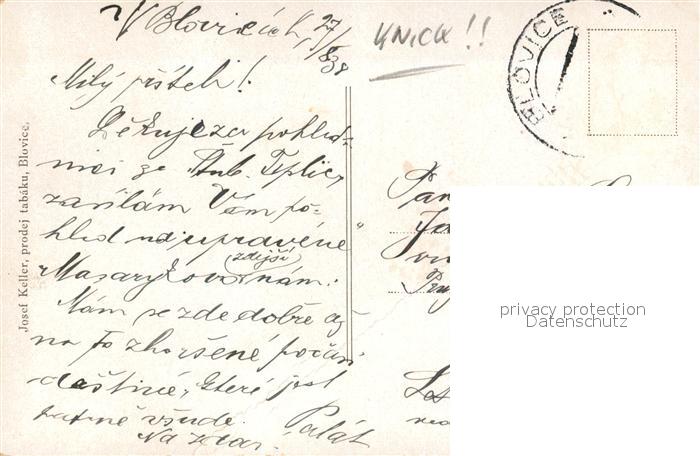 V Blovicích, 27/8 38
UNICA!!
BLOVICE
Milý příteli!
Děkuje za pohled-
nici ze Štub. Teplic,
zasílám Vám po-
hled na „upravené"
(zdejší)
Masarykovo nám.
Mám se zde dobře až
na to zhoršené počasí
deštivé, které jest
patrně všude.
Na zdar! Palát
Pan
Josef Keller, prodej tabáku, Blovice.
privacy protection
Datenschutz